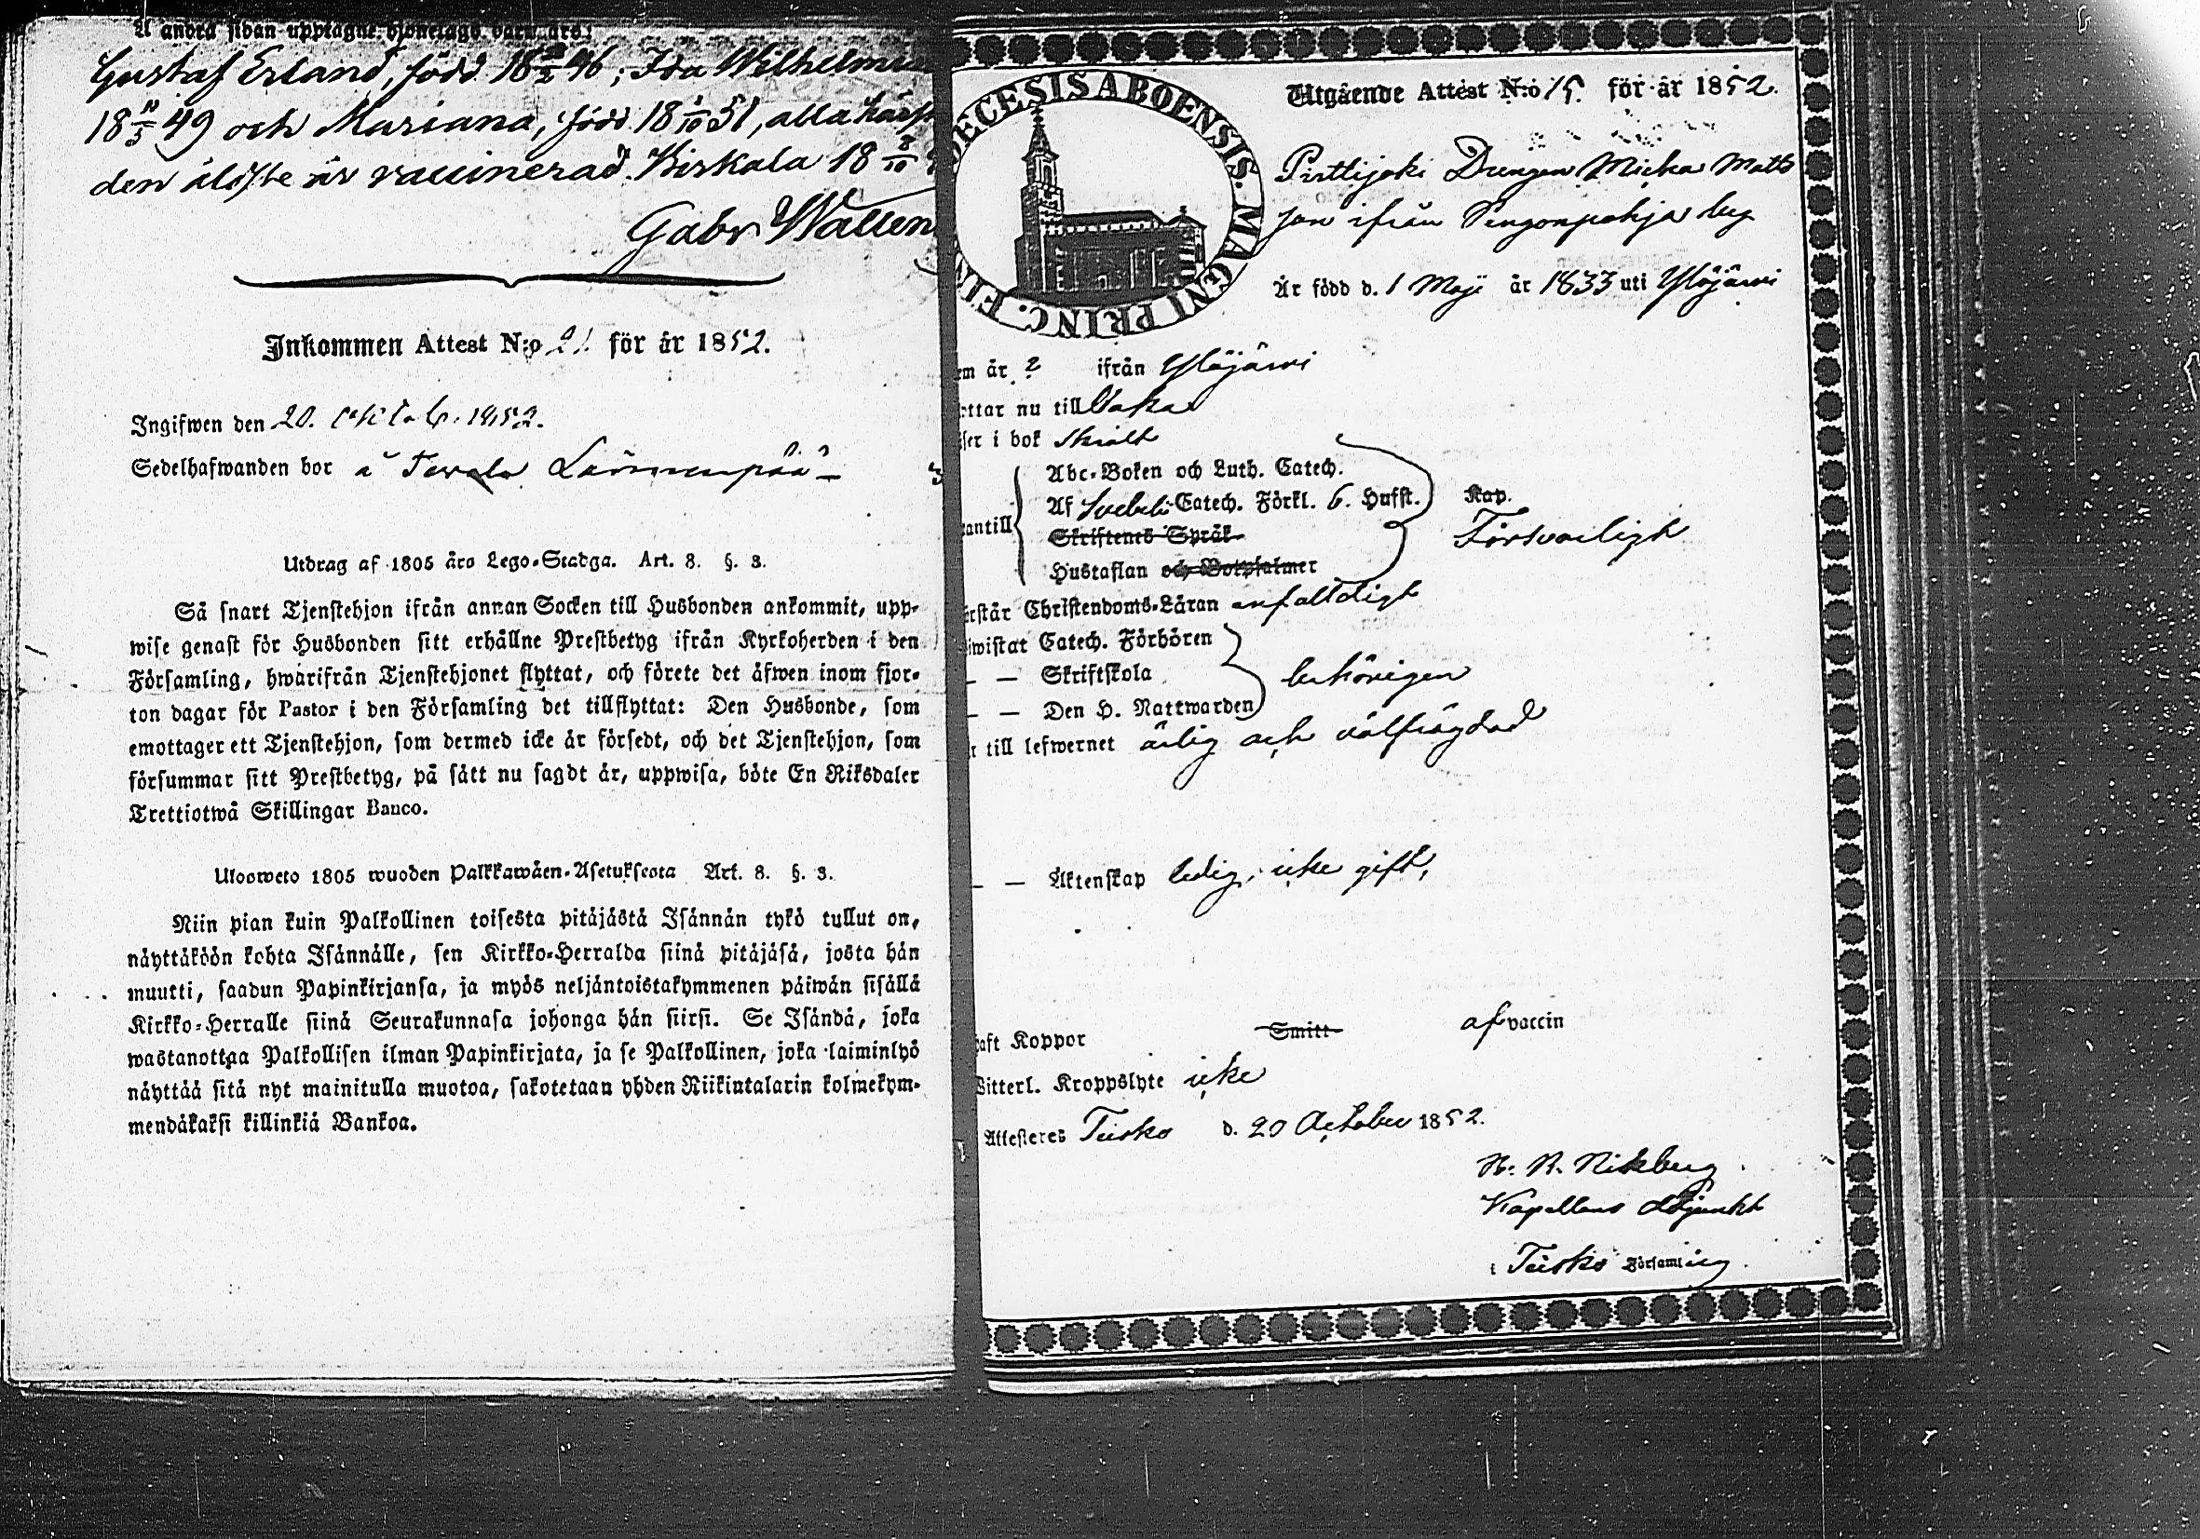 Å andra sidan upptagne hjonelags barn äro:
Gustaf Erland, född 18 2/2 46; Ida Wilhelmi
18 11/5 49 och Mariana, född 18 1/10 51, alla
den äldste är vaccinerad. Birkala 18 8/10
Gabr Wallen
Inkommen Attest N:o 21. för år 1852.
Ingifwen den 20. 1852.
Sedelhafwanden bor å
Utdrag af 1805 års Lego-Stadga. Art. 8. §. 3.
Så snart Tjenstehjon ifrån annan Socken till Husbonden ankommit, upp-
wise genast för Husbonden sitt erhållne Prestbetyg ifrån Kyrkoherden i den
Församling, hwarifrån Tjenstehjonet flyttat, och förete det åfwen inom fjor-
ton dagar för Pastor i den Församling det tillflyttat: Den Husbonde, som
emottager ett Tjenstehjon, som dermed icke är försedt, och det Tjenstehjon, som
försummar sitt Prestbetyg, på sätt nu sagdt är, uppwisa, böte En Riksdaler
Trettiotwå Skillingar Banco.
Ulosweto 1805 wuoden Palkkawäen-Asetuksesta Art. 8. §. 3.
Niin pian kuin Palkollinen toisesta pitäjästä Isännän tykö tullut on,
näyttäköön kohta Isännälle, sen Kirkko-Herralda siinä pitäjäsä, josta hän
muutti, saadun Papinkirjansa, ja myös neljäntoistakymmenen päiwän sisällä
Kirkko-Herralle siinä Seurakunnasa johonga hän siirsi. Se Isändä, joka
wastanottaa Palkollisen ilman Papinkirjata, ja se Palkollinen, joka laiminlyö
näyttää sitä nyt mainitulla muotoa, sakotetaan yhden Riikintalarin kolmekym-
mendäkaksi killinkiä Bankoa.
OECESIS ABOENSIS. MAGNI PRINC. FIN
Utgående Attest N:o 15. för år 1852.
Pirttijoki Drengen Micka Matts
son ifrån
Är född d. 1 Maji år 1833 uti Ylöjärwi
m år ifrån Ylöjärwi
ttar nu till
ser i bok
Abc-Boken och Luth. Catech.
Af Svebeli Catech. Förkl. 6. Hufst. Kap.
antill Skriftenes Språk Försvarligt
Hustaflan och Botpsalmer
rstår Christendoms-Läran enfaldigt
wistat Catech. Förhören
— — Skriftskola behörigen
— — Den H. Nattwarden
r till lefwernet ärlig och välfrägdad
— — Äktenskap ledig, icke gift,
haft Koppor Smitt af vaccin
Witterl. Kroppslyte icke
Attesteres Teisko d. 20 October 1852.
Kapellans Adjunkt
i Teisko Församling